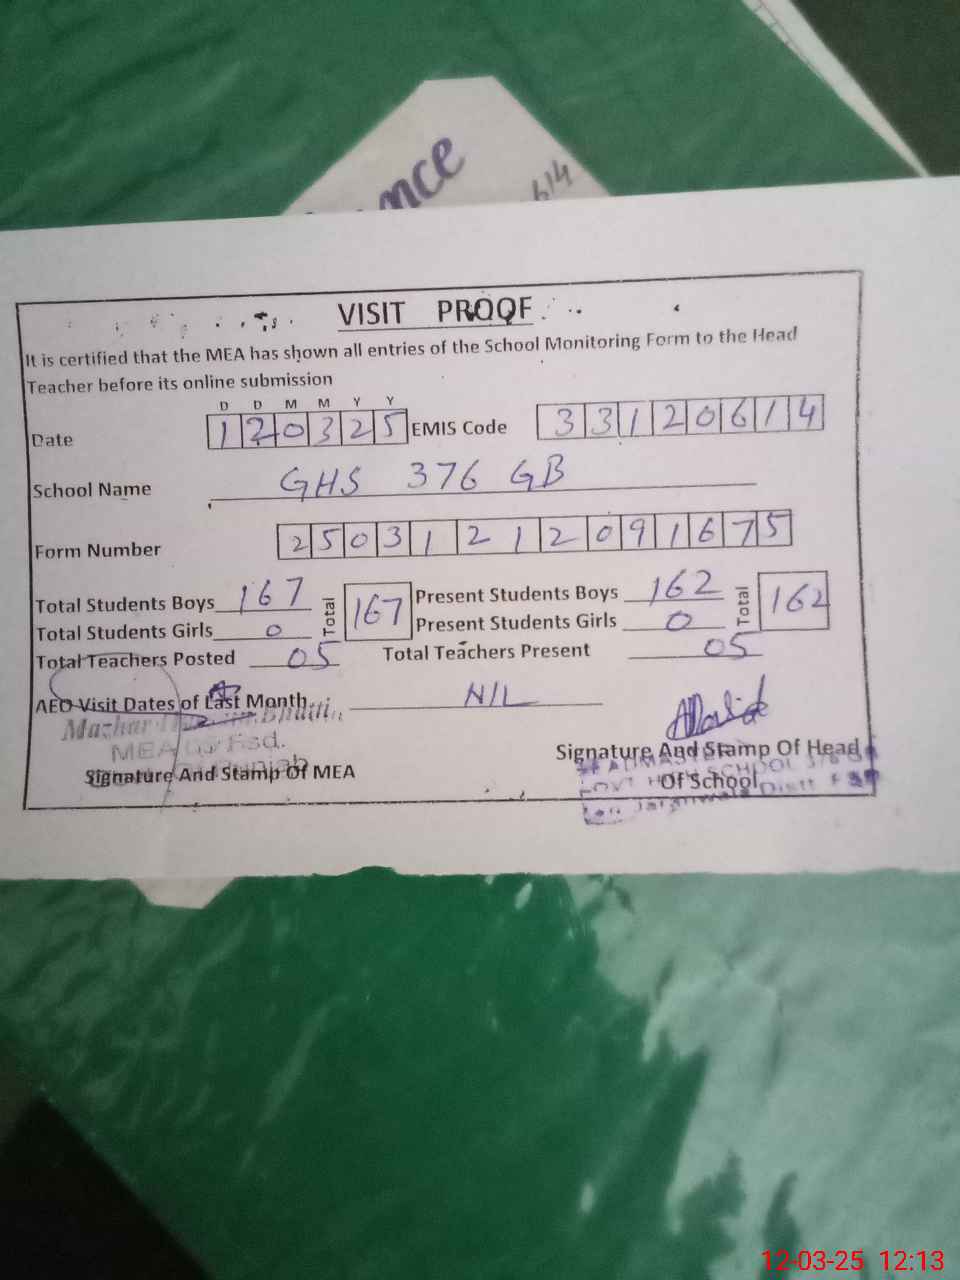 614
VISIT PROOF
It is certified that the MEA has shown all entries of the School Monitoring Form to the Head
Teacher before its online submission
D D M M Y Y
Date 120325 EMIS Code 33120614
School Name GHS 376 GB
Form Number 25031212091675
Total Students Boys 167 Total 167 Present Students Boys 162 Total 162
Total Students Girls 0 Present Students Girls 0
Total Teachers Posted 05 Total Teachers Present 05
AEO Visit Dates of Last Month NIL
Mazhar Bhatti
MEA Fsd.
Signature And Stamp Of MEA
Signature And Stamp Of Head
Of School
HEADMASTER
GOVT HIGH SCHOOL 376 GB
Jaranwala Distt
12-03-25 12:13